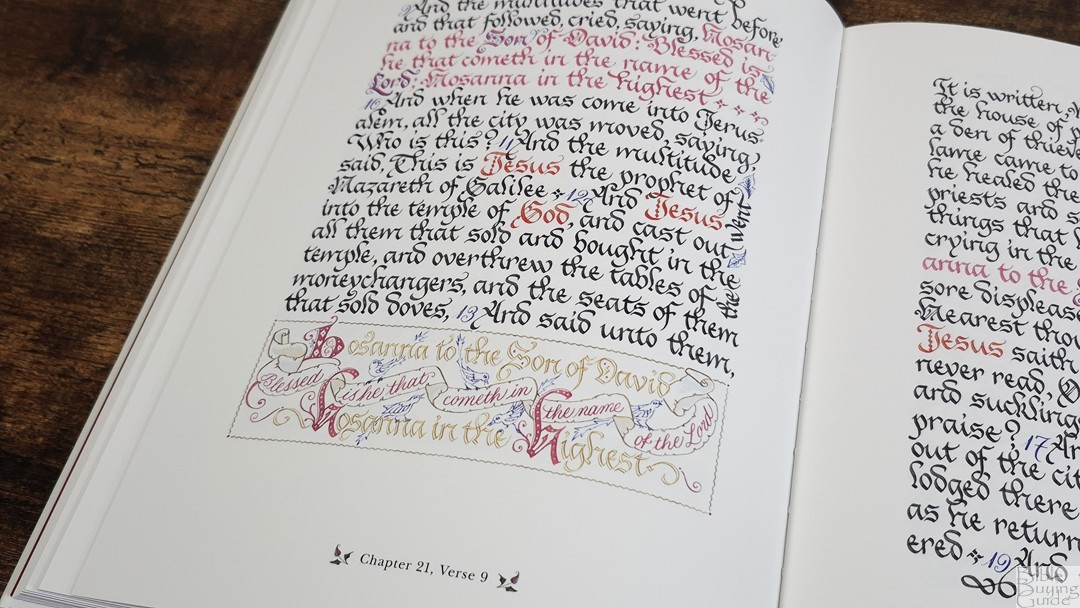 9 And the multitudes that went before
and that followed, cried, saying, Hosan
na to the Son of David: Blessed is
he that cometh in the name of the
Lord; Hosanna in the highest
10 And when he was come into Jerus
alem, all the city was moved, saying,
Who is this? 11 And the multitude
said, This is Jesus the prophet of
Nazareth of Galilee 12 And Jesus went
into the temple of God, and cast out
all them that sold and bought in the
temple, and overthrew the tables of the
moneychangers, and the seats of them
that sold doves, 13 And said unto them,
Hosanna to the Son of David
Blessed is he that cometh in the name of the Lord
Hosanna in the Highest
Chapter 21, Verse 9
It is written,
the house of
a den of thieve
lame came to
he healed the
priests and s
things that
crying in the
anna to the
sore displease
Hearest thou
Jesus saith
never read, O
and suckling
praise? 17 An
out of the cit
lodged there
as he return
ered 19 And
Bible
Buying
Guide